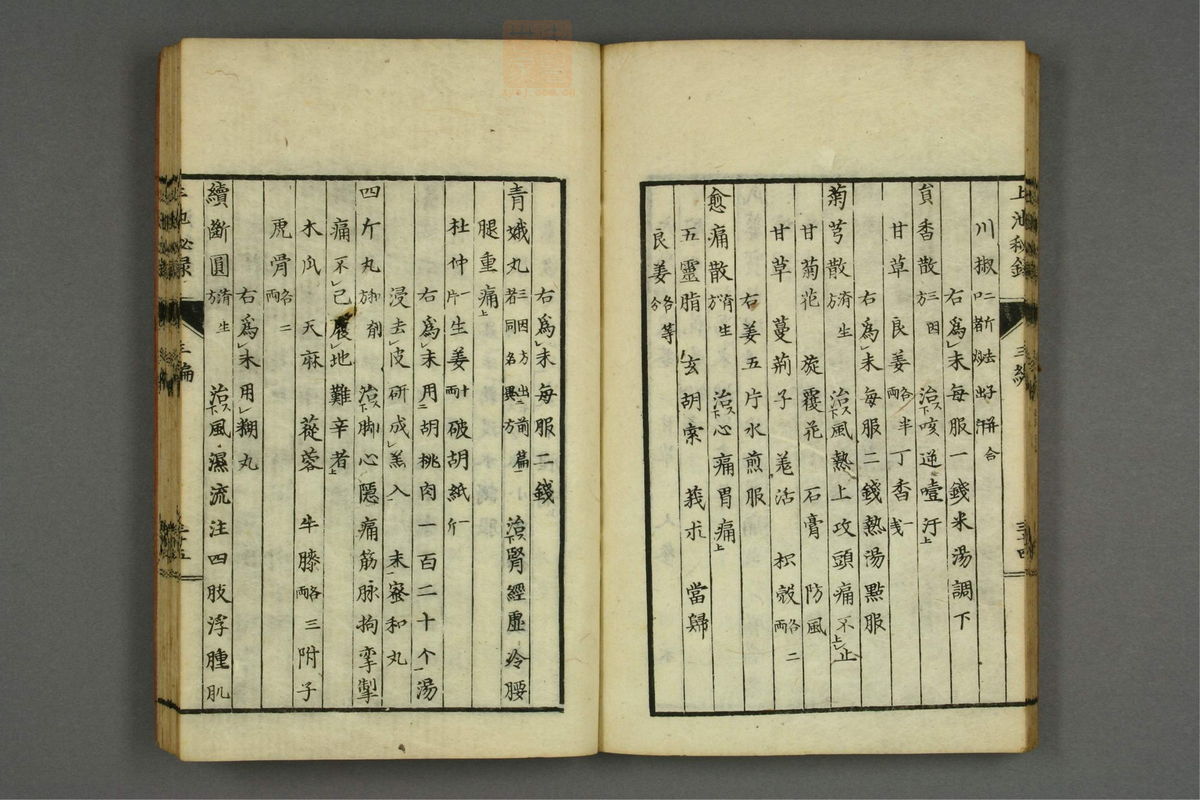 上池秘録 三編 三十四
川椒 二斤去子并合口者炒出汗
右爲末毎服一錢米湯調下
貟香散 三因方 治咳逆噎汗
甘草 良姜 各半兩 丁香 一戔
右爲末毎服二錢熱湯點服
菊芎散 济生方 治風熱上攻頭痛不止
甘菊花 旋覆花 石膏 防風
甘草 蔓荊子 羗活 枳殻 各二兩
右姜五片水煎服
愈痛散 济生方 治心痛胃痛
五靈脂 玄胡索 莪朮 當歸
良姜 各等分
右爲末毎服二錢
青娥丸 三因方出前篇若同名異方 治腎經虛冷腰
腿重痛
杜仲 一斤 生姜 十兩 破胡紙 一斤
右爲末用胡桃肉一百二十个湯
浸去皮研成羔入末蜜和丸
四斤丸 和劑方 治脚心隠痛筋脉拘挛掣
痛不已履地難辛者
木瓜 天麻 蓯蓉 牛膝 各三兩 附子
虎骨 各二兩
右爲末用糊丸
續斷圓 济生方 治風濕流注四肢浮腫肌
上池必录 三編 三十五